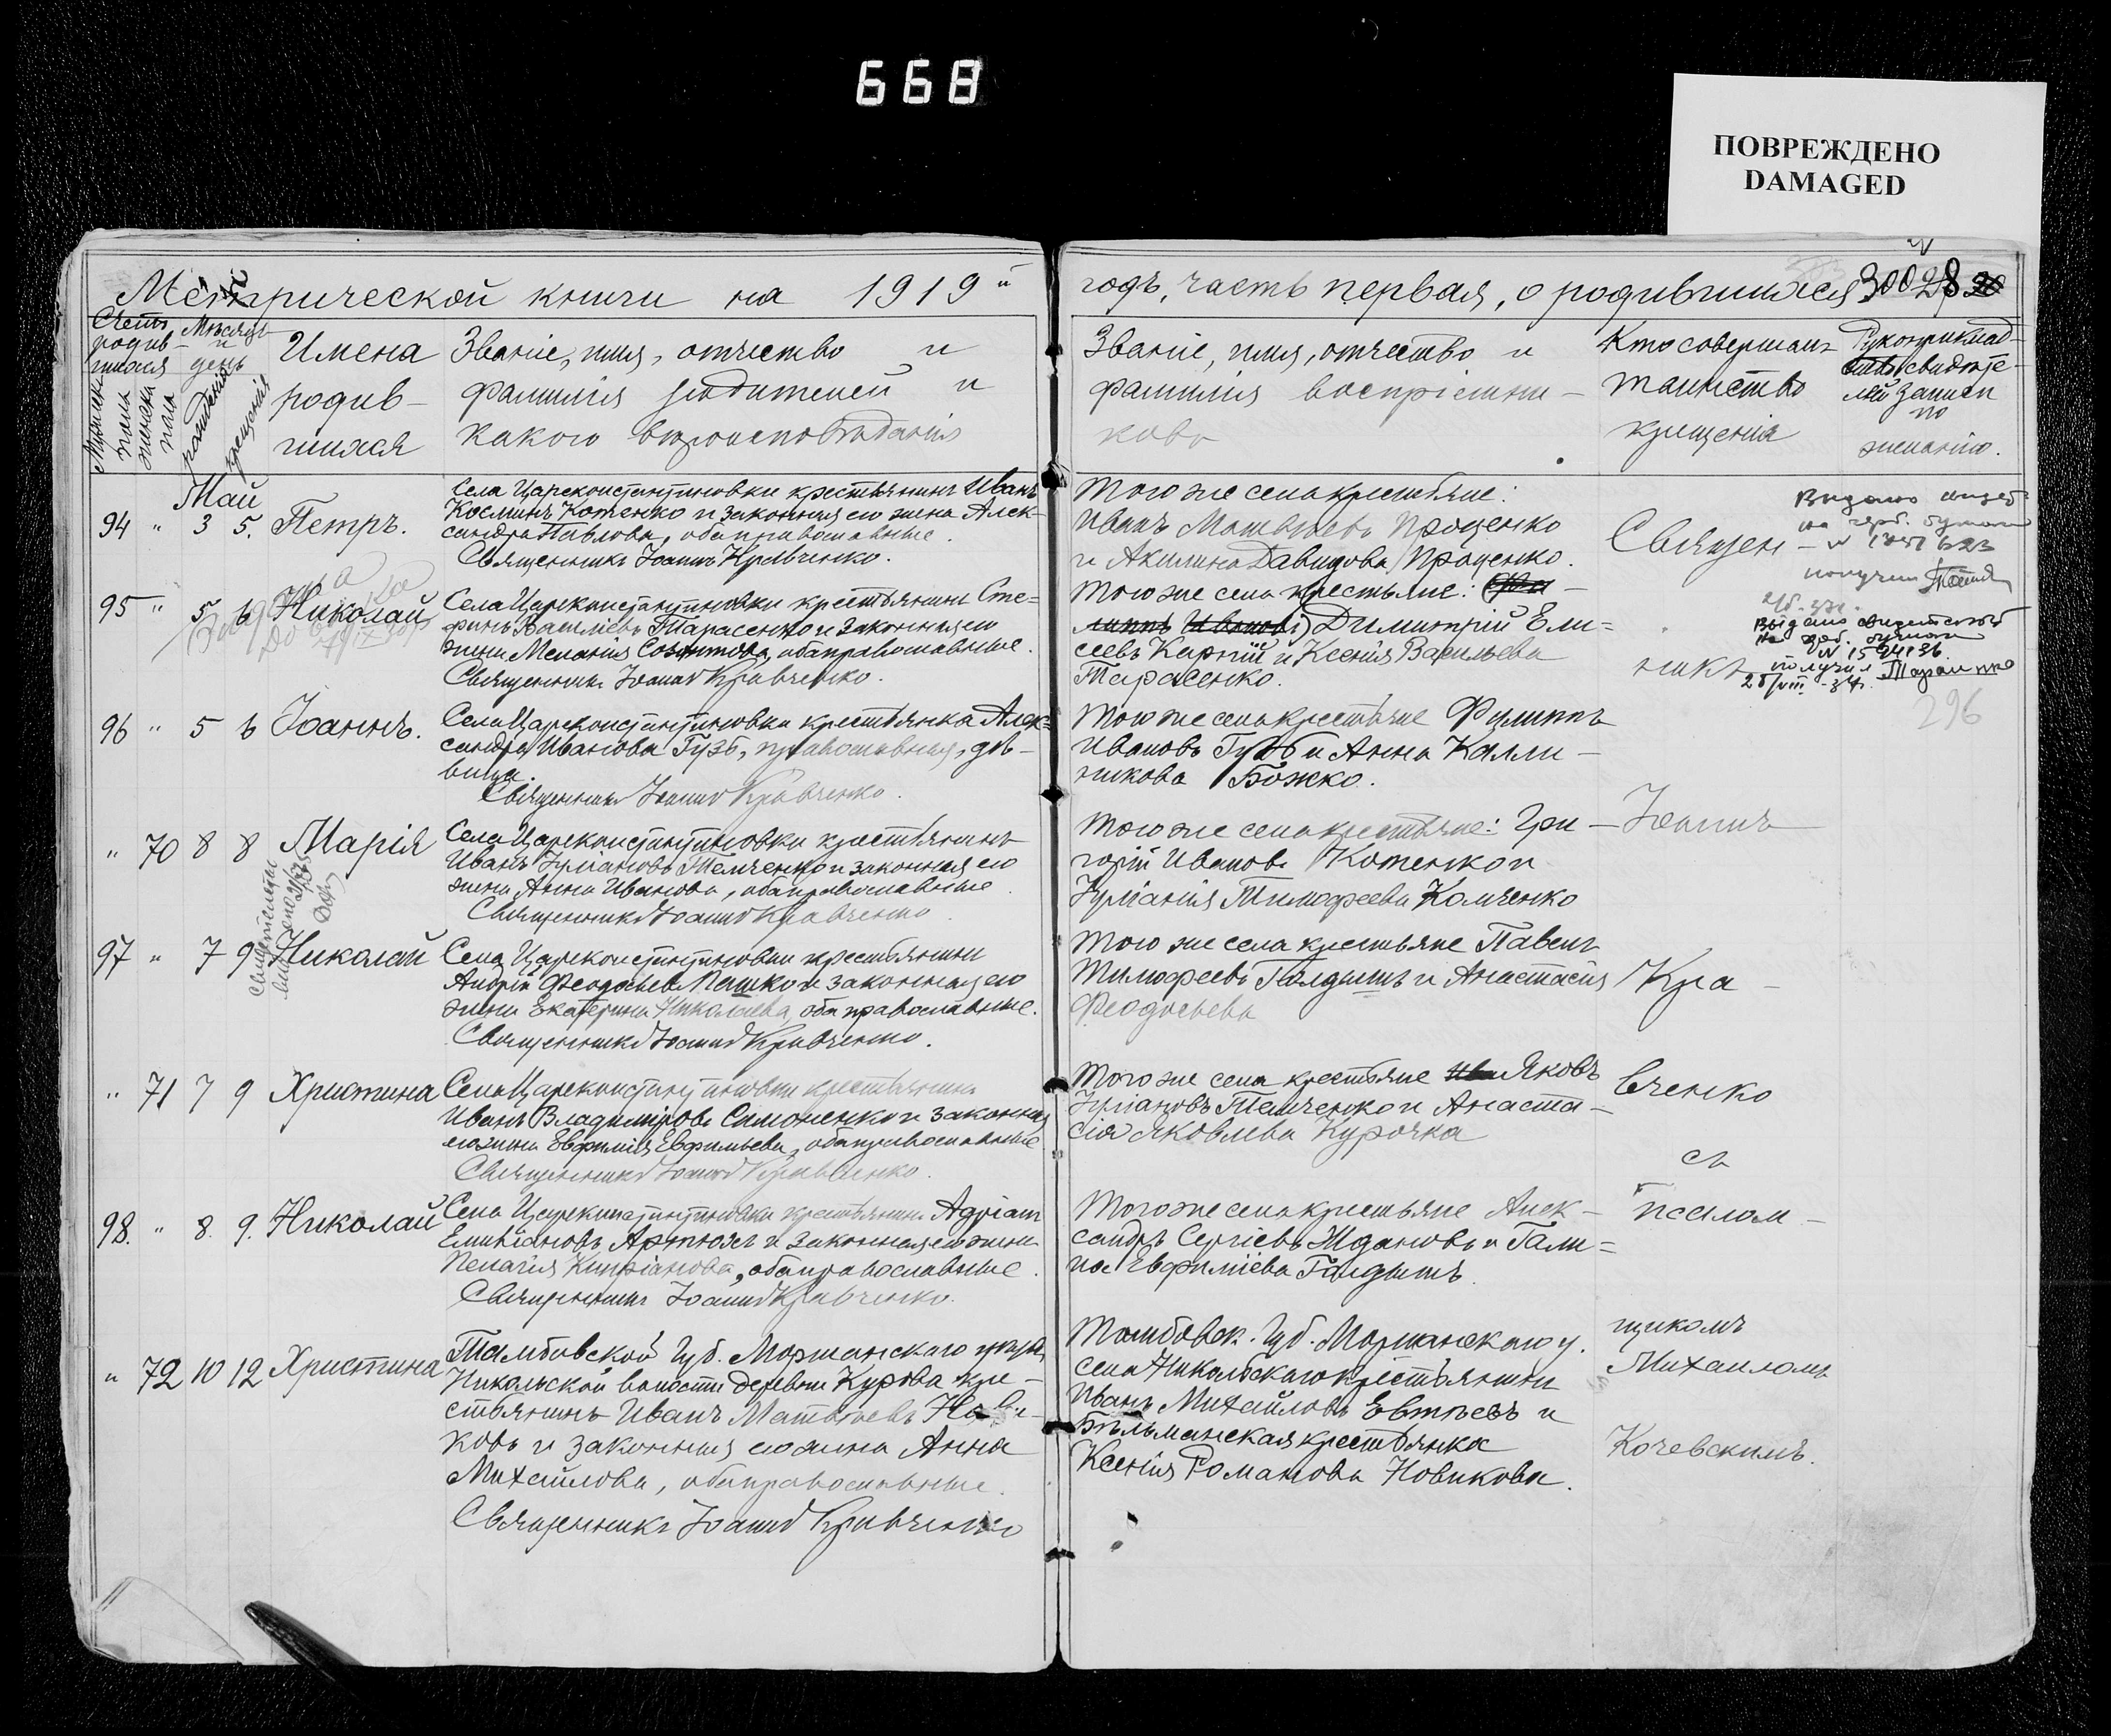 668
ПОВРЕЖДЕНО
DAMAGED
Метрической книги на 1919й
годъ, часть первая, о родившихся
300 28
Счетъ родив-шихся
Мужеска пола
женска пола
Мѣсяцъ и день
рожденія
крещенія
Имена
родив-
шихся
Званіе, имя, отчество и
фамилія родителей и
какого вѣроисповѣданія
Званіе, имя, отчество и
фамилія воспріемни-
ковъ
Кто совершалъ
таинство
крещенія
Рукоприклад-
ство свидѣте-
лей записи
по
желанію.
Май
94 " 3 5. Петръ.
Села Цареконстантиновки крестьянинъ Иванъ
Косминъ Котенко и законная его жена Алек-
сандра Павлова, оба православные.
Священникъ Іоаннъ Кравченко.
Того же села крестьяне:
Иванъ Матвѣевъ Проценко
и Акилина Давидова Проценко.
Священ-
Видано
на герб. бумаге
получил
95 " 5 6 Николай
Села Цареконстантиновки крестьянинъ Сте-
фанъ Василіевъ Тарасенко и законная его
жена Меланія, оба православные.
Священникъ Іоаннъ Кравченко.
Того же села крестьяне:
Димитрій Ели-
сеевъ Карпій и Ксенія Васильева
Тарасенко.
никъ
Выдано
на герб. бумаге
N 159436
получил Тарасенко
296
96 " 5 6 Іоаннъ.
Села Цареконстантиновки крестьянка Алек-
сандра Иванова Гузь, православная, дѣ-
вица.
Священникъ Іоаннъ Кравченко.
Того же села крестьяне Филиппъ
Ивановъ Гузь и Анна Калли-
никова Божко.
" 70 8 8 Марія
Села Цареконстантиновки крестьянинъ
Иванъ Іуліановъ Темченко и законная его
жена Анна Иванова, оба православные.
Священникъ Іоаннъ Кравченко.
Того же села крестьяне: Гри-
горій Ивановъ Котенко и
Іуліанія Тимофеева Камченко
Іоаннъ
97 " 7 9 Николай
Села Цареконстантиновки крестьянинъ
Андрій Феодосьевъ Пашко и законная его
жена Екатерина Николаева, оба православные.
Священникъ Іоаннъ Кравченко.
Того же села крестьяне Павелъ
Тимофеевъ Галдышъ и Анастасія
Феодосьева
Кра-
" 71 7 9 Христина
Села Цареконстантиновки крестьянинъ
Иванъ Владиміровъ Симоненко и законная
его жена Евфимія Евфимьева, оба православные
Священникъ Іоаннъ Кравченко.
Того же села крестьяне Яковъ
Іуліановъ Темченко и Анаста-
сія Яковлева Курочка
вченко
съ
98. " 8. 9. Николай
Села Цареконстантиновки крестьянинъ Адріанъ
Емиліановъ Артюхъ и законная его жена
Пелагія Кипріанова, оба православные.
Священникъ Іоаннъ Кравченко.
Того же села крестьяне Алек-
сандръ Сергіевъ Ждановъ и Гали-
на Евфиміева Галдышъ.
псалом-
" 72 10 12 Христина
Тамбовской Губ. Моршанскаго уѣзда,
Никольской волости деревни Курова кре-
стьянинъ Иванъ Матвѣевъ Нови-
ковъ и законная его жена Анна
Михайлова, оба православные.
Священникъ Іоаннъ Кравченко
Тамбовск. Губ. Моршанскаго у.
села Никольскаго крестьянинъ
Иванъ Михайловъ Евтѣевъ и
Бѣльманская крестьянка
Ксенія Романова Новикова.
щикомъ
Михаиломъ
Кочевскимъ.